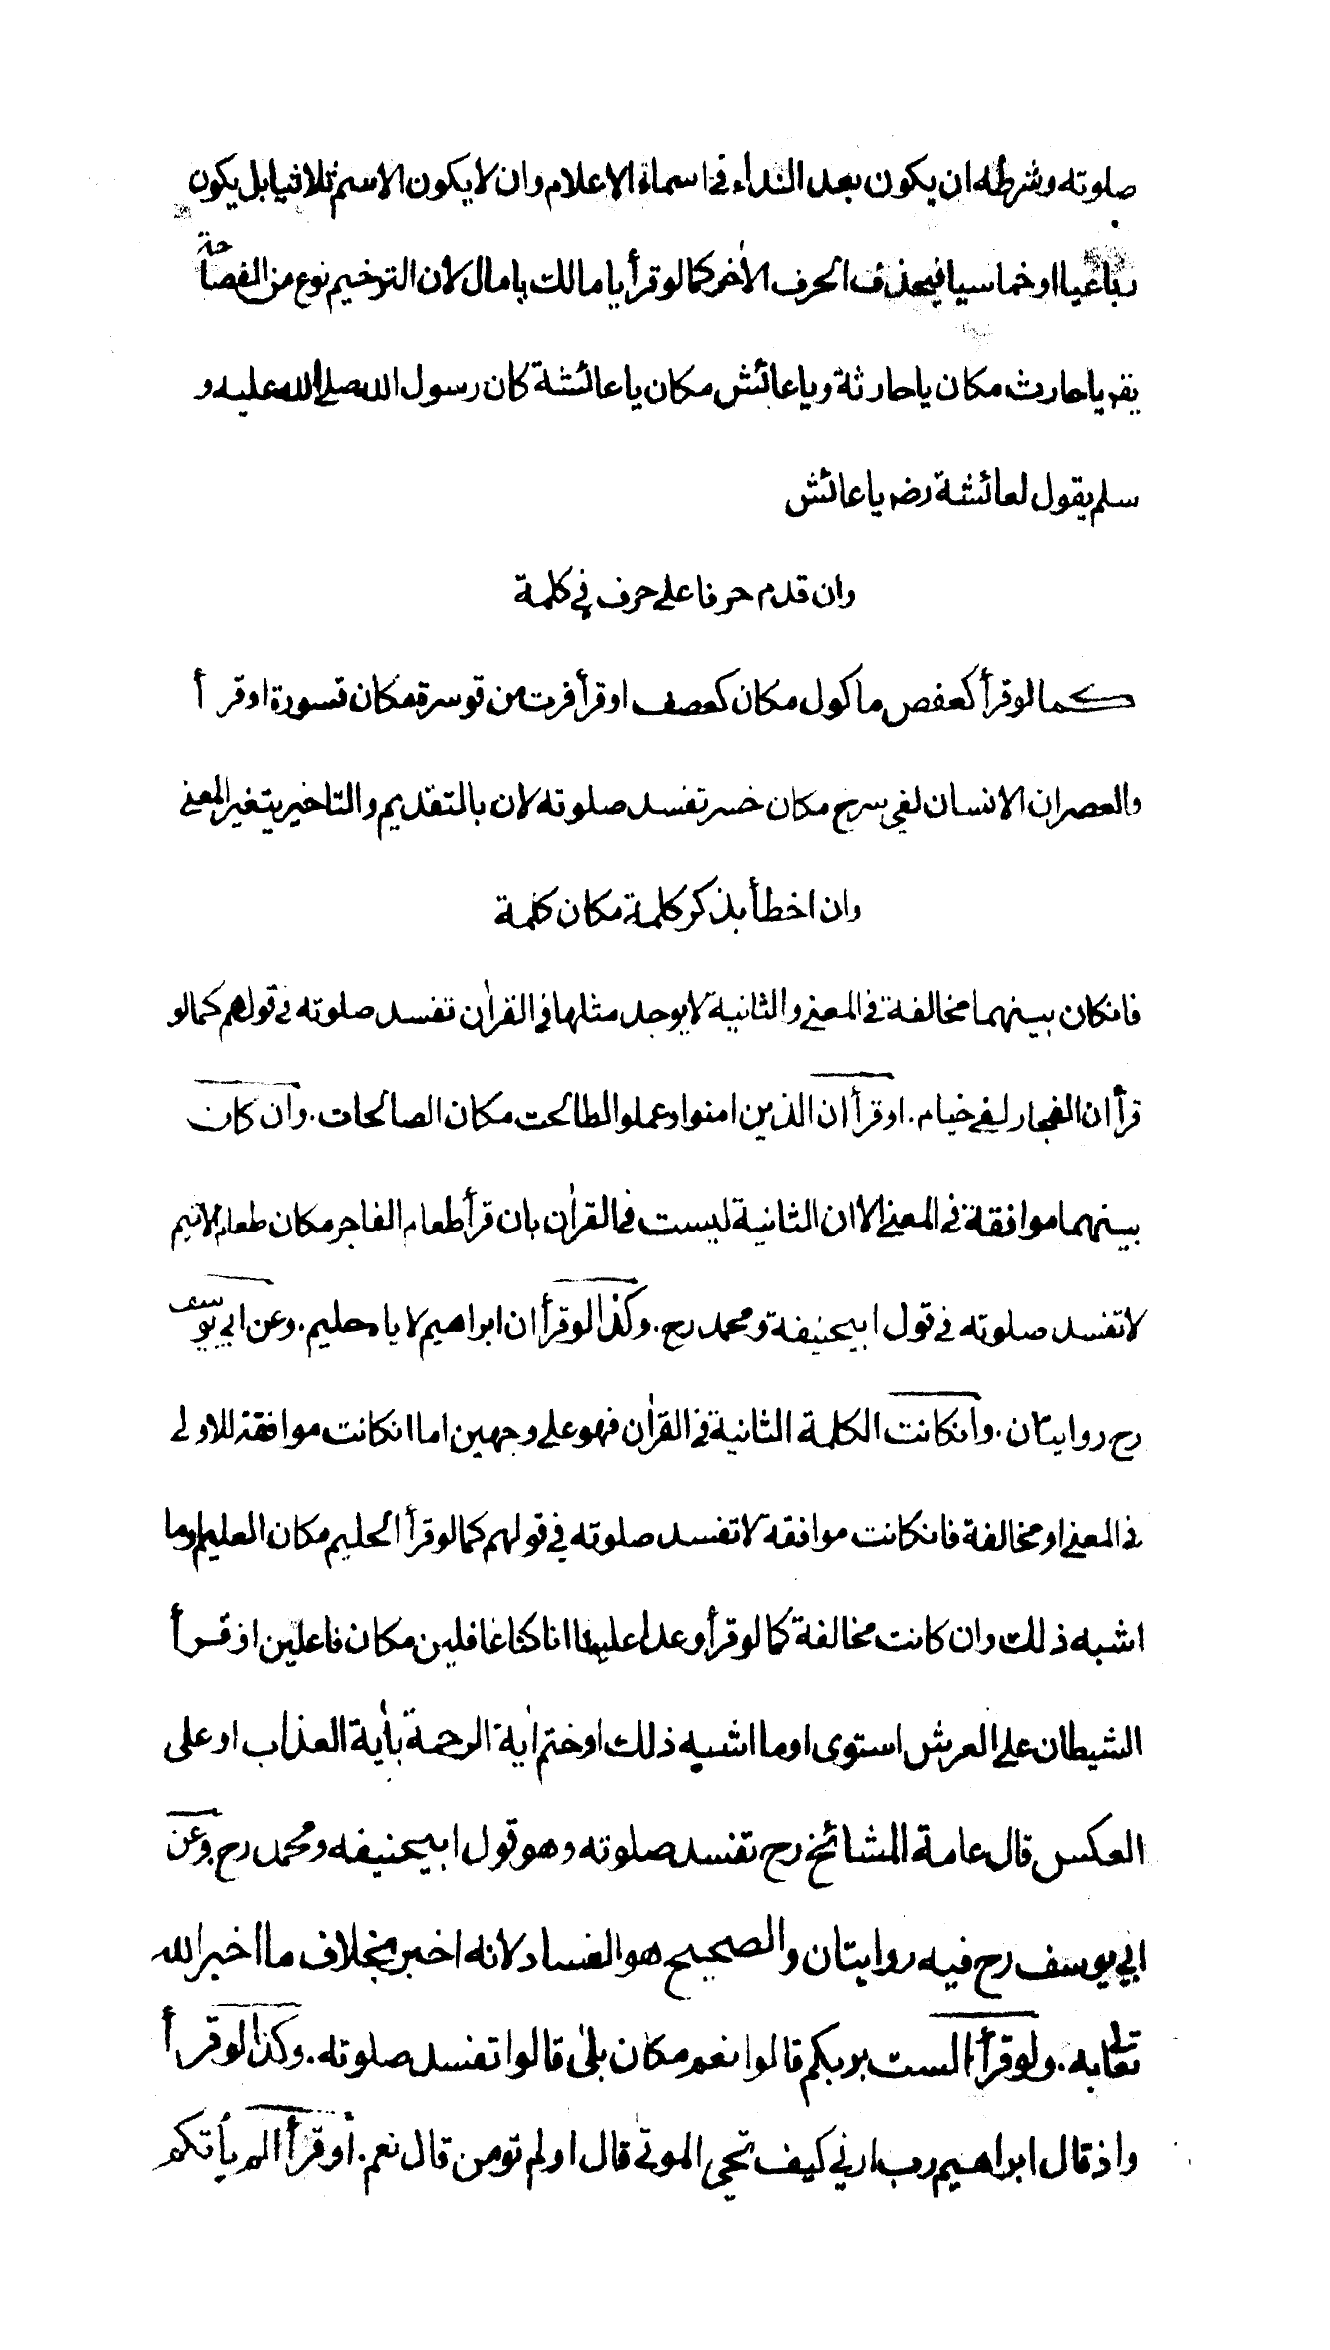 صلوته وشرطه ان يكون بعد النداء في اسماء الاعلام وان لا يكون الاسم ثلاثيا بل يكون
رباعيا او خماسيا فيحذف الحرف الاخر كما لو قرأ يا مالك يا مال لان الترخيم نوع من الفصاحة
يقر يا حارث مكان يا حارثة ويا عائش مكان يا عائشة كان رسول الله صلى الله عليه و
سلم يقول لعائشة رضـ يا عائش
وان قدم حرفا على حرف في كلمة
كما لو قرأ كعفص ماكول مكان كعصف او قرأ فرت من قوسرة مكان قسورة او قرأ
والعصر ان الانسان لفي سرخ مكان خسر تفسد صلوته لان بالتقديم والتاخير يتغير المعنى
وان اخطأ بذكر كلمة مكان كلمة
فانكان بينهما مخالفة في المعنى والثانية لا يوجد مثلها في القران تفسد صلوته في قولهم كما لو
قرأ ان الفجار لفي خيام. او قرأ ان الذين امنوا وعملوا الطالحت مكان الصالحات. وان كان
بينهما موافقة في المعنى الا ان الثانية ليست في القران بان قرأ طعام الفاجر مكان طعام الاثيم
لا تفسد صلوته في قول ابيحنيفة ومحمد رح. وكذا لو قرأ ان ابراهيم لاياه حليم. وعن ابي يوسف
رح روايتان. وانكانت الكلمة الثانية في القران فهو على وجهين اما انكانت موافقة للاولى
في المعنى او مخالفة فانكانت موافقه لا تفسد صلوته في قولهم كما لو قرأ الحليم مكان العليم وما
اشبه ذلك وان كانت مخالفة كما لو قرأ وعدا علينا انا كنا غافلين مكان فاعلين او قرأ
الشيطان على العرش استوى او ما اشبه ذلك او ختم اية الرحمة بأية العذاب او على
العكس قال عامة المشائخ رح تفسد صلوته وهو قول ابيحنيفه ومحمد رح. وعن
ابي يوسف رح فيه روايتان والصحيح هو الفساد لانه اخبر بخلاف ما اخبر الله
تعالى به. ولو قرأ الست بربكم قالوا نعم مكان بلى قالوا تفسد صلوته. وكذا لو قرأ
واذ قال ابراهيم رب ارني كيف تحي الموتى قال اولم تومن قال نعم. او قرأ الم يأتكم